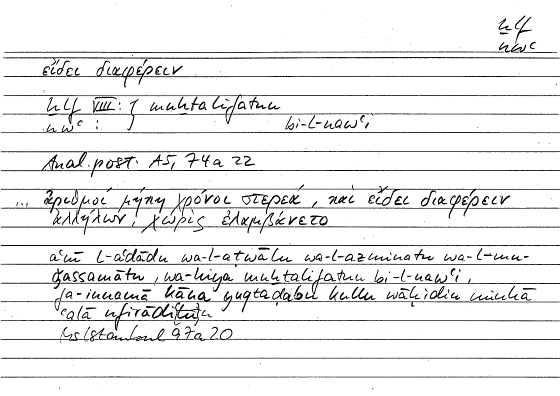 ḫlf
nwʿ
εἴδει διαφέρειν
ḫlf VIII: } muḫtalifatun
nwʿ : } bi-l-nawʿi
Anal. post. A5, 74a22
... ἀριθμοὶ μήκη χρόνοι στερεά, καὶ εἴδει διαφέρειν
ἀλλήλων, χωρὶς ἐλαμβάνετο
aʿnī l-aʿdādu wa-l-aṭwālu wa-l-azminatu wa-l-mu-
ǧassamātu, wa-hiya muḫtalifatun bi-l-nawʿi,
fa-innamā kāna yuqtaḍabu kullu wāḥidin minhā
ʿalā
Ms Istanbul 97a20